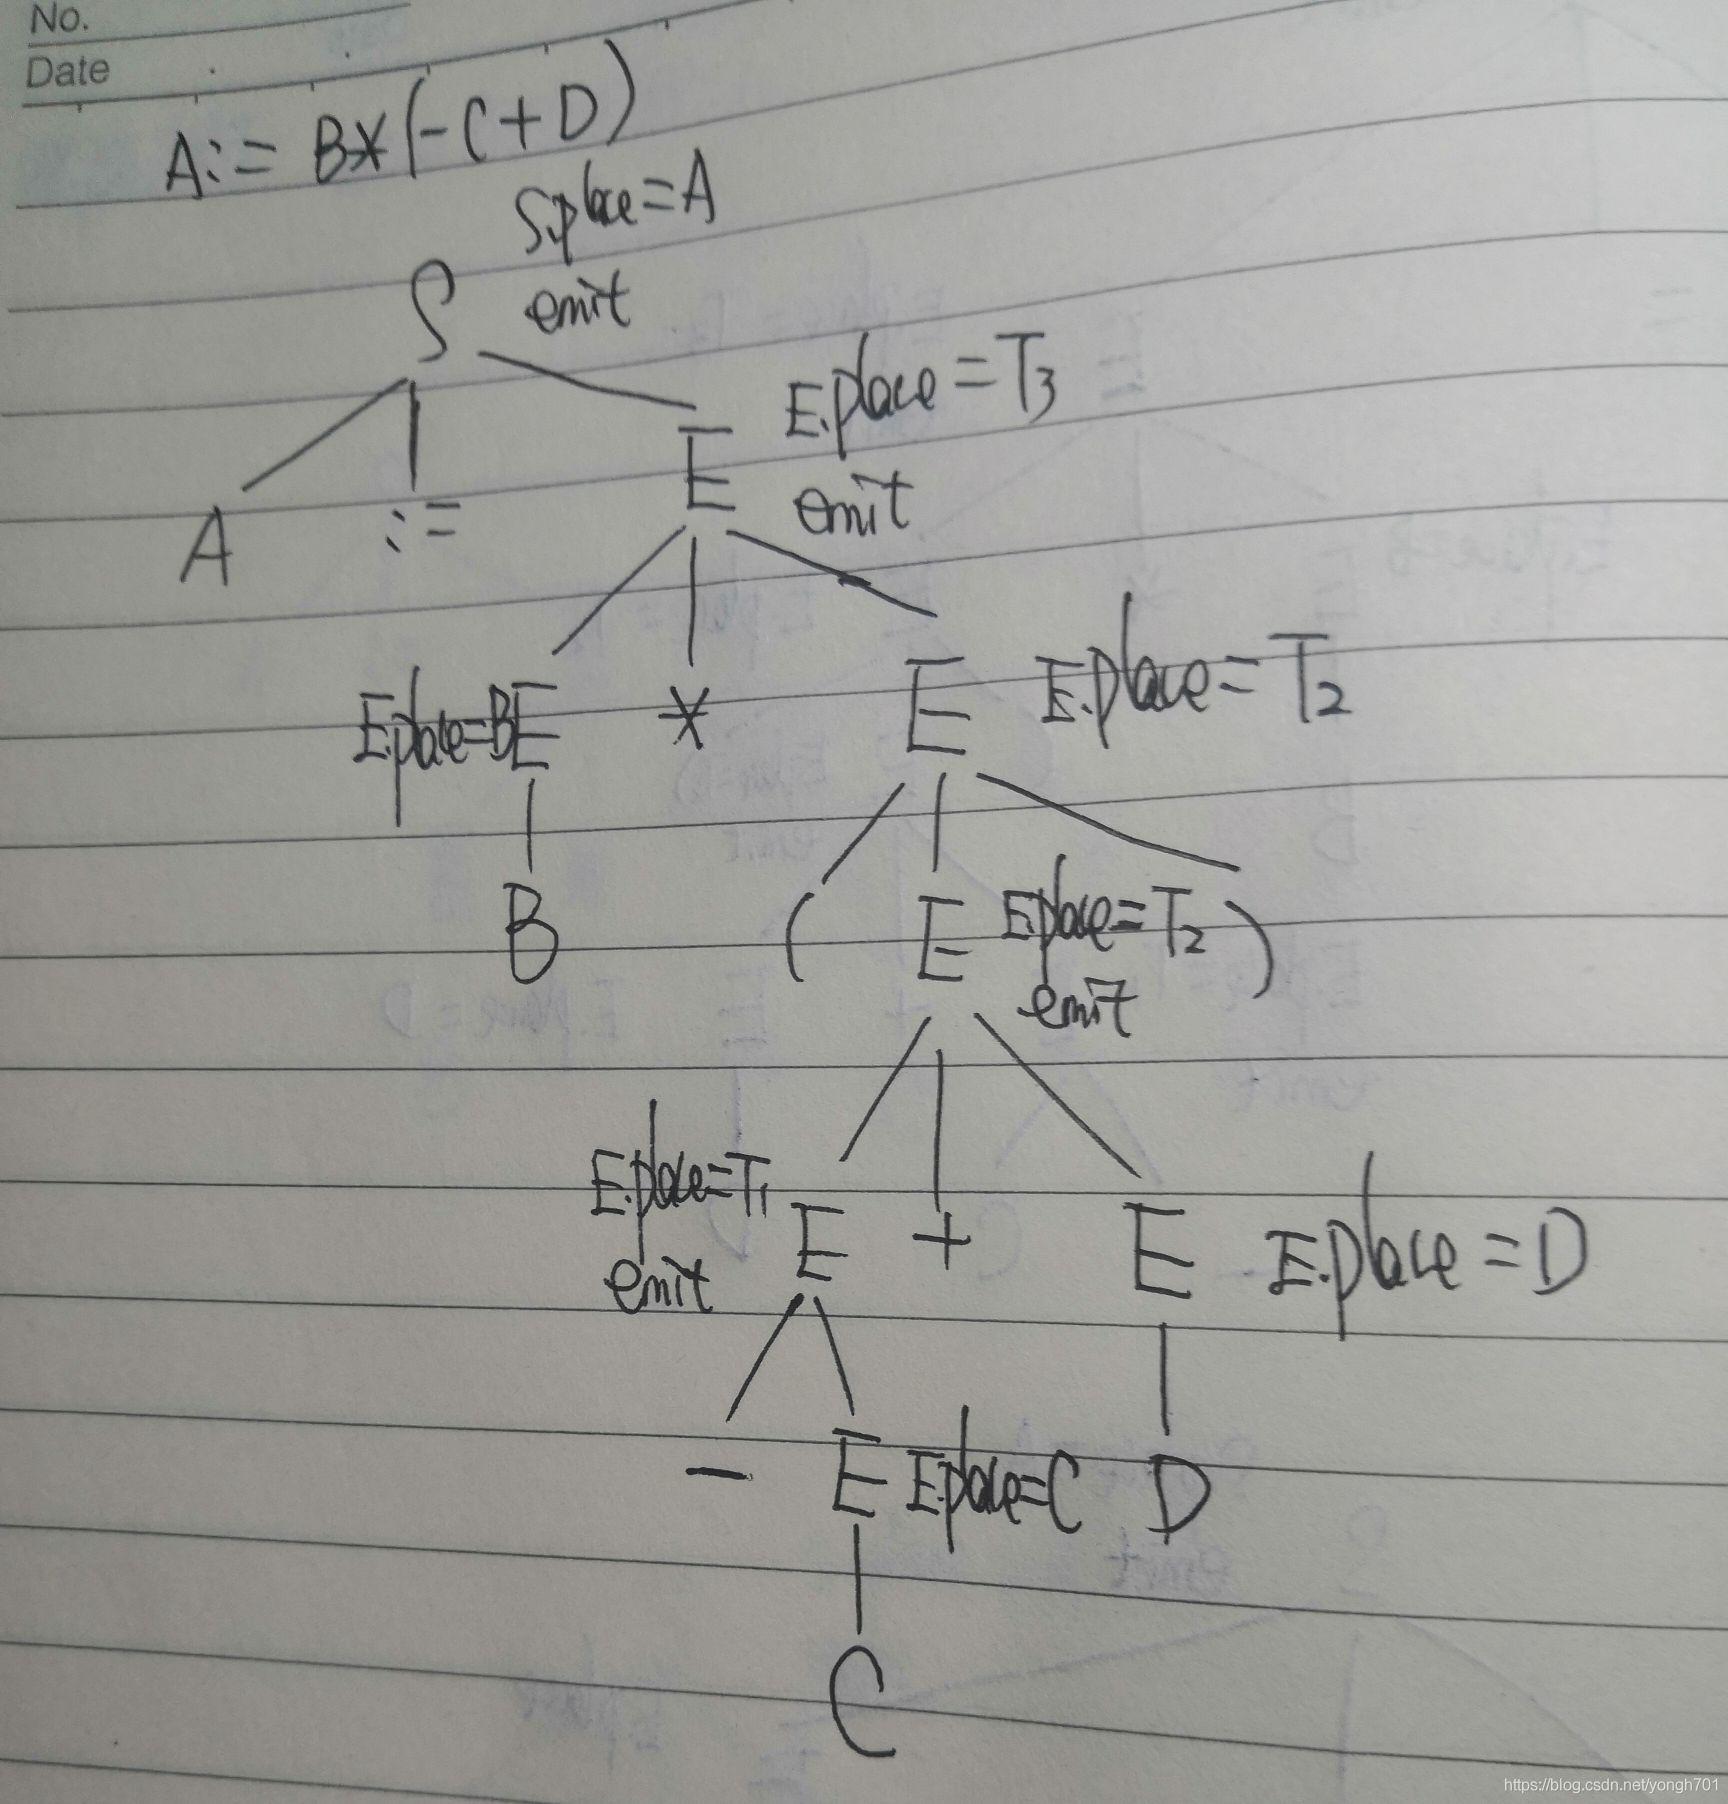 No.
Date
A:=B*(-C+D)
S.place=A
S emit
E.place=T3
E emit
A :=
E.place=B E * E E.place=T2
B ( E E.place=T2 )
emit
E.place=T1 E + E E.place=D
emit
- E E.place=C D
C
https://blog.csdn.net/yongh701